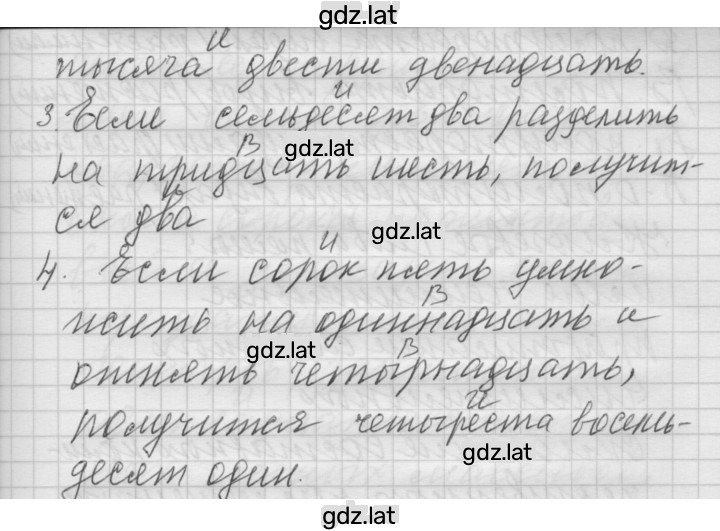 gdz.lat
и
тысяча двести двенадцать.
и
3. Если семьдесят два разделить
gdz.lat
в
на тридцать шесть, получит-
и
ся два
gdz.lat
и
4. Если сорок пять умно-
в
жить на одиннадцать и
gdz.lat
в
отнять четырнадцать,
и
получится четыреста восемь-
gdz.lat
десят один.
gdz.lat